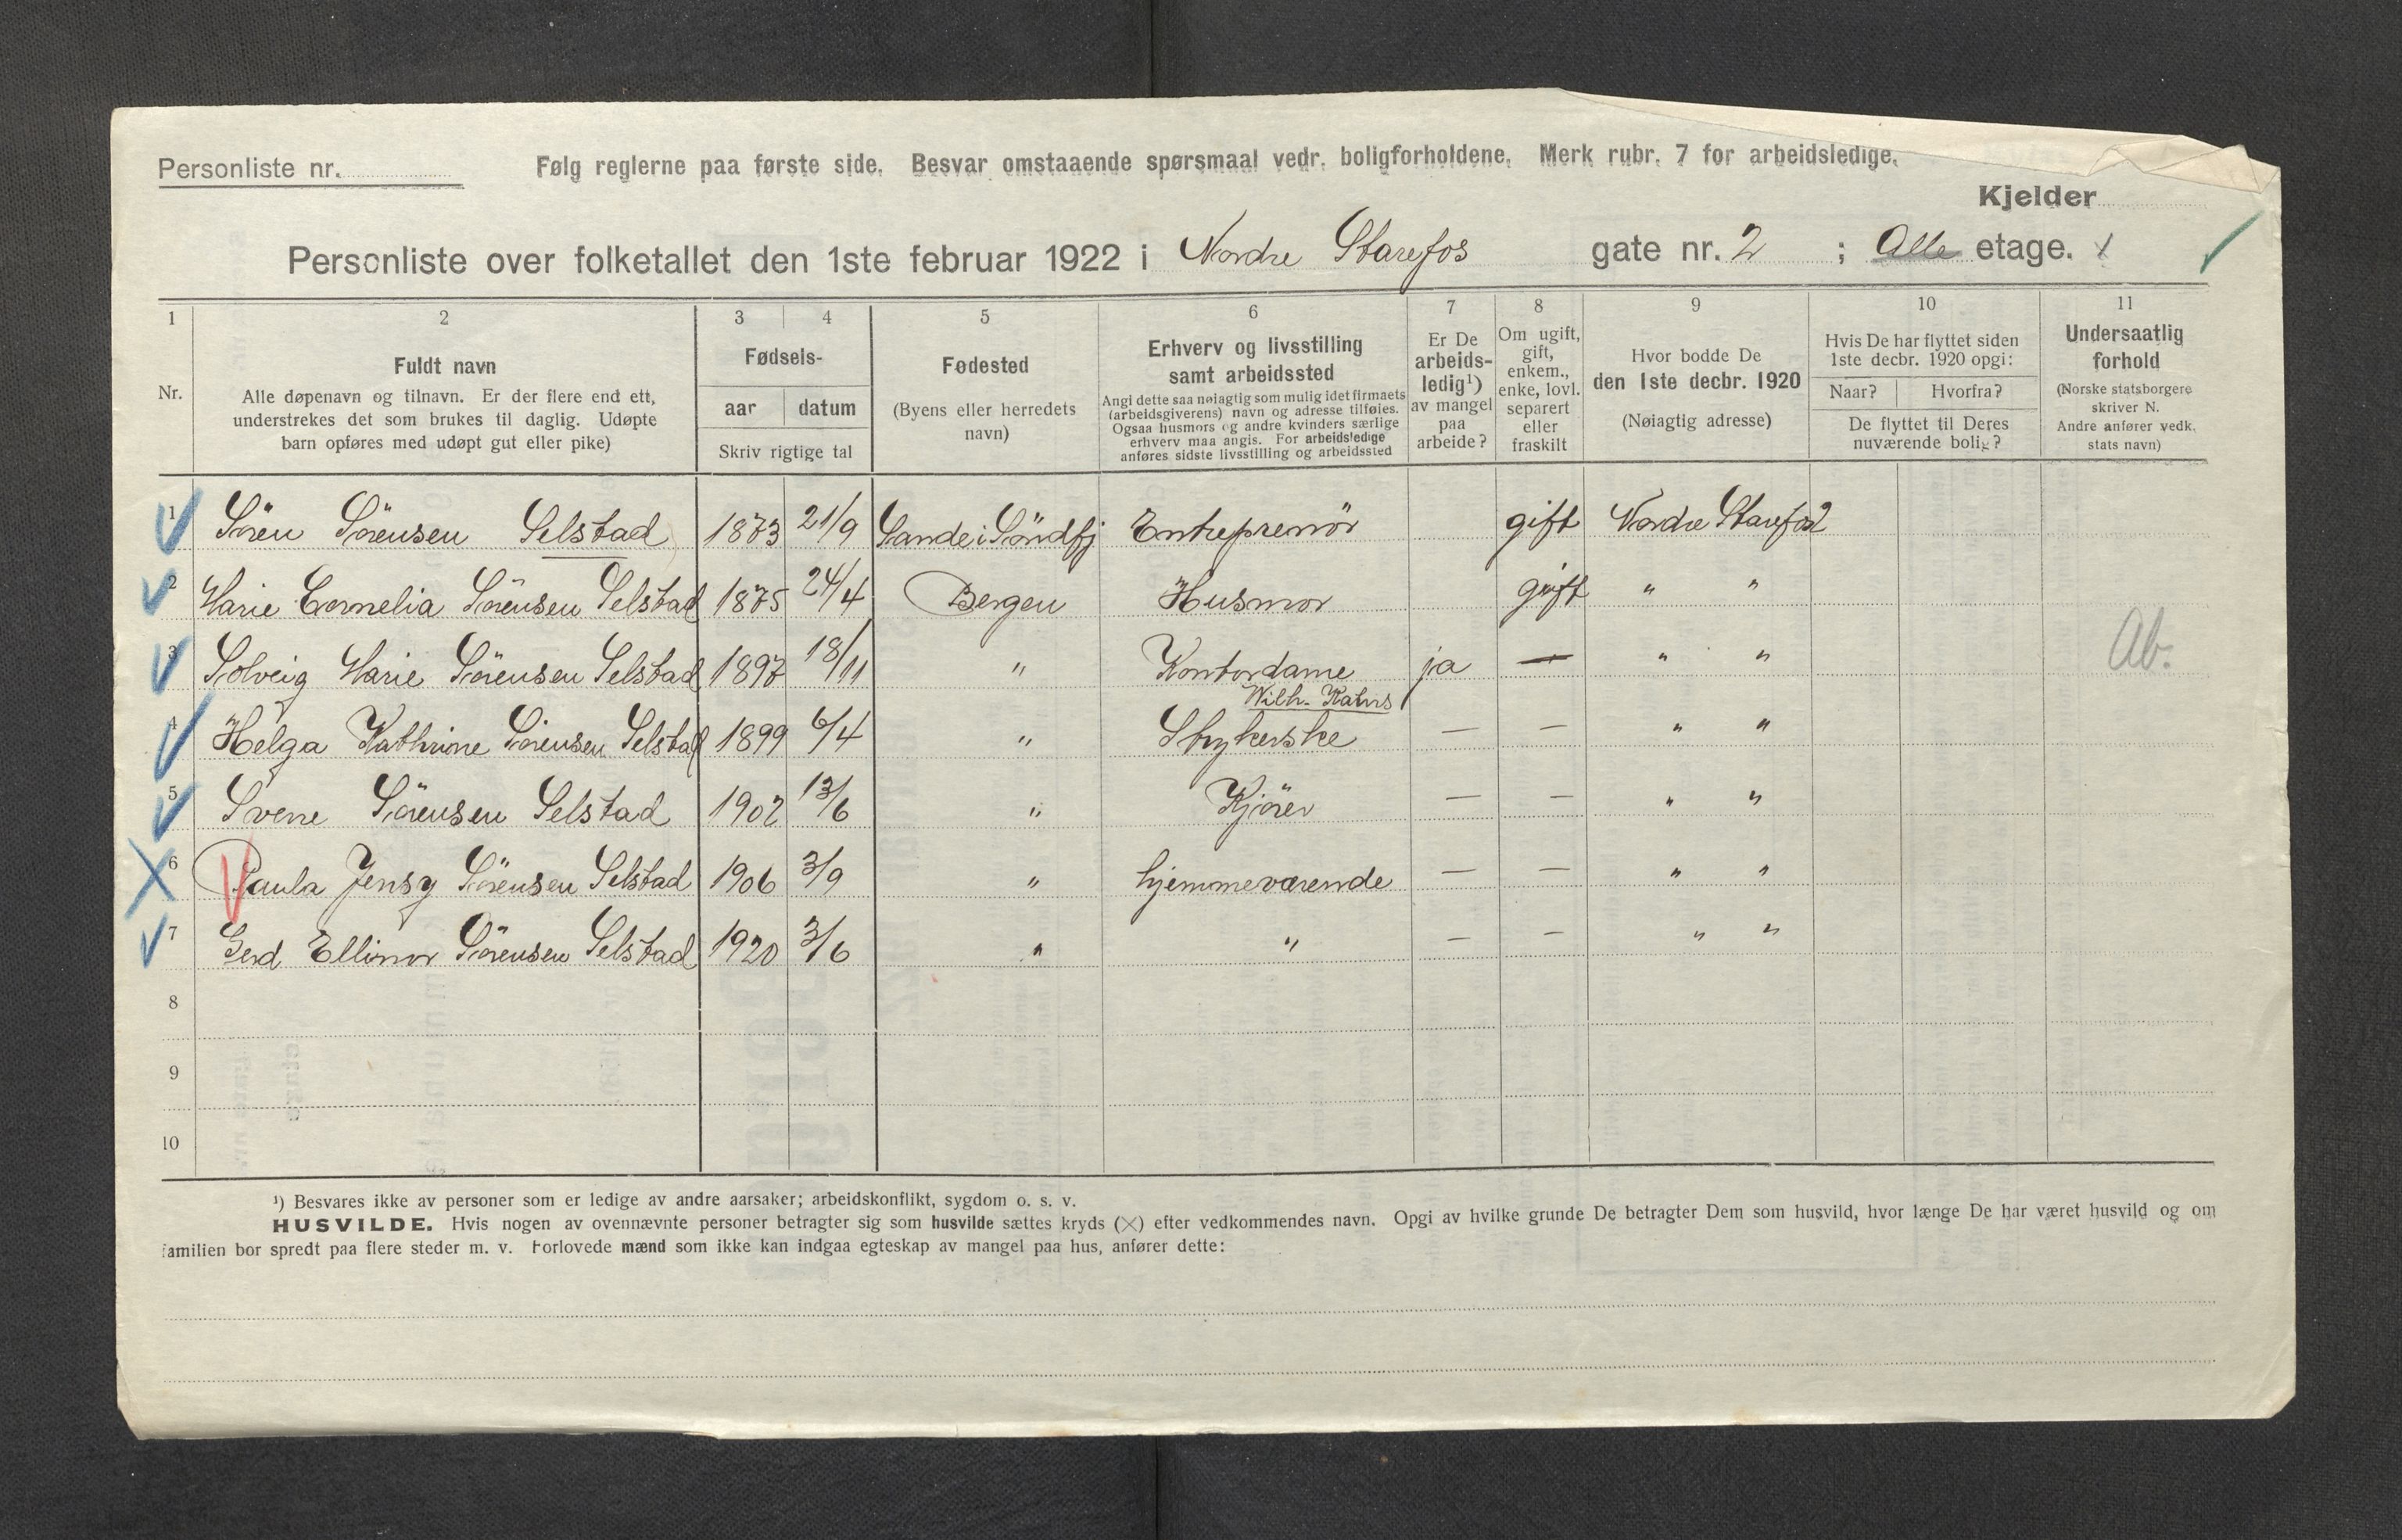 Personliste nr.
Følg reglerne paa første side. Besvar omstaaende spørsmaal vedr. boligforholdene. Merk rubr. 7 for arbeidsledige.
Kjelder
Personliste over folketallet den 1ste februar 1922 i Nordre Starefos gate nr. 2 ; Alle etage.
1 2 3 4 5 6 7 8 9 10 11
Nr.
Fuldt navn
Alle døpenavn og tilnavn. Er der flere end ett,
understrekes det som brukes til daglig. Udøpte
barn opføres med udøpt gut eller pike)
Fødsels-
aar datum
Skriv rigtige tal
Fødested
(Byens eller herredets
navn)
Erhverv og livsstilling
samt arbeidssted
Angi dette saa nøiagtig som mulig idet firmaets
(arbeidsgiverens) navn og adresse tilføies.
Ogsaa husmors og andre kvinders særlige
erhverv maa angis. For arbeidsledige
anføres sidste livsstilling og arbeidssted
Er De
arbeids-
ledig¹)
av mangel
paa
arbeide?
Om ugift,
gift,
enkem.,
enke, lovl.
separert
eller
fraskilt
Hvor bodde De
den 1ste decbr. 1920
(Nøiagtig adresse)
Hvis De har flyttet siden
1ste decbr. 1920 opgi:
Naar? Hvorfra?
De flyttet til Deres
nuværende bolig?
Undersaatlig
forhold
(Norske statsborgere
skriver N.
Andre anfører vedk.
stats navn)
1 Sören Sörensen Selstad 1873 21/9 Sande i Söndfj Entreprenör gift Nordre Starefos 2
2 Marie Cornelia Sörensen Selstad 1875 24/4 Bergen Husmor gift " "
3 Solveig Marie Sörensen Selstad 1897 18/11 " Kontordame ja — " " Ab.
Wilh.
4 Helga Kathrine Sörensen Selstad 1899 6/4 " Strykerske — — " "
5 Sverre Sörensen Selstad 1902 13/6 " Kjörer — — " "
6 Paula Jensy Sörensen Selstad 1906 3/9 " hjemmeværende — — " "
7 Gerd Ellinor Sörensen Selstad 1920 3/6 " " — — " "
8
9
10
¹) Besvares ikke av personer som er ledige av andre aarsaker; arbeidskonflikt, sygdom o. s. v.
HUSVILDE. Hvis nogen av ovennævnte personer betragter sig som husvilde sættes kryds (×) efter vedkommendes navn. Opgi av hvilke grunde De betragter Dem som husvild, hvor længe De har været husvild og om
familien bor spredt paa flere steder m. v. Forlovede mænd som ikke kan indgaa egteskap av mangel paa hus, anfører dette: